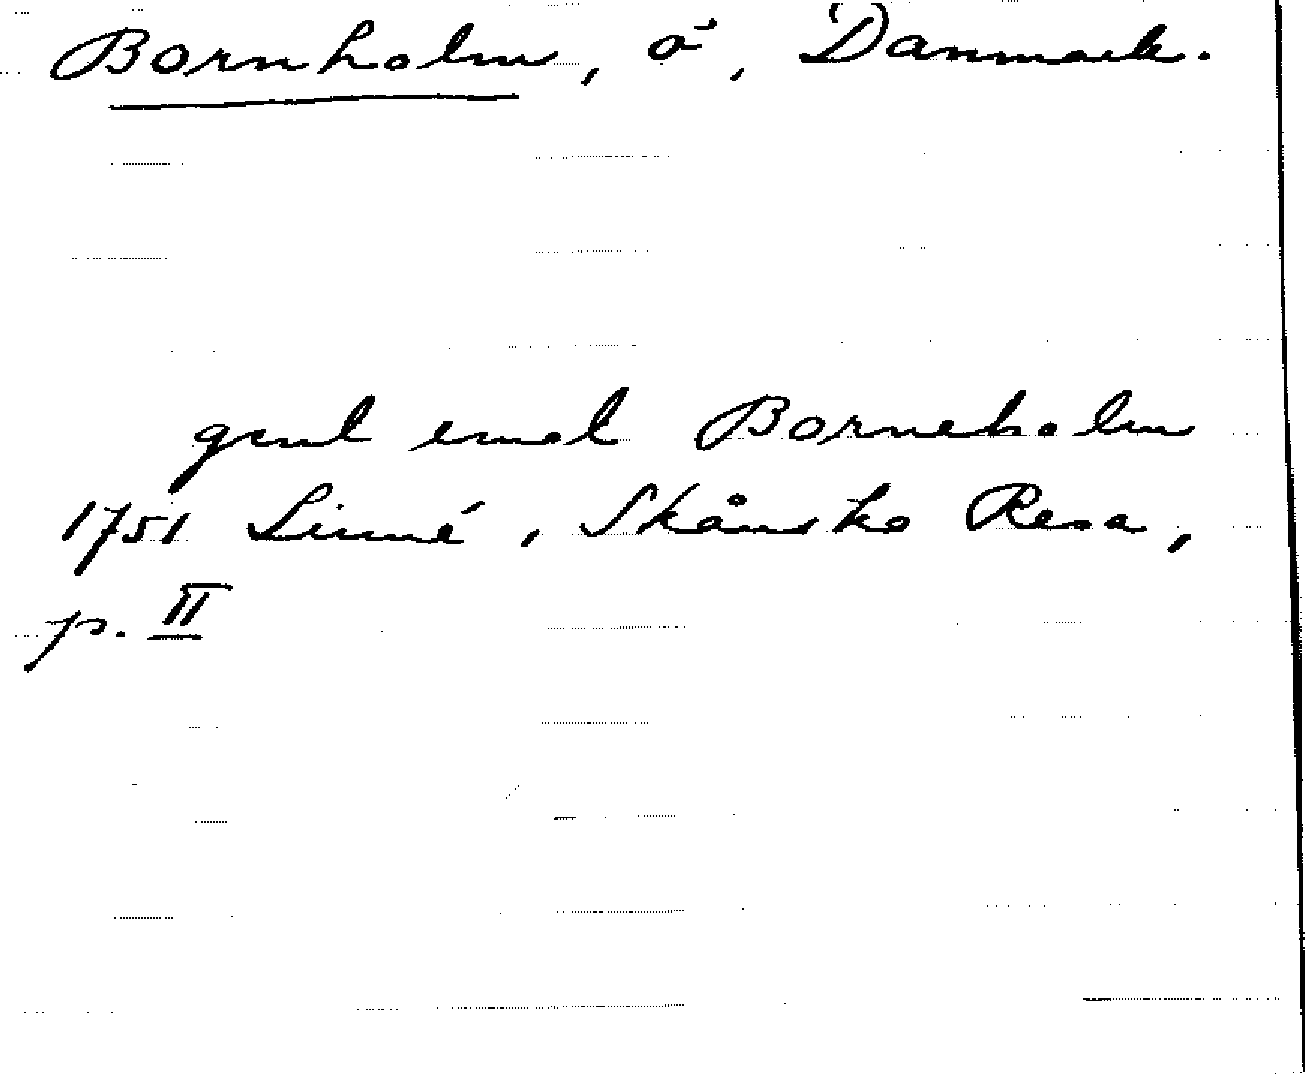 Bornholm, ö, Danmark.
gent emot Borneholm
1751 Linné, Skånska Resa,
p. II